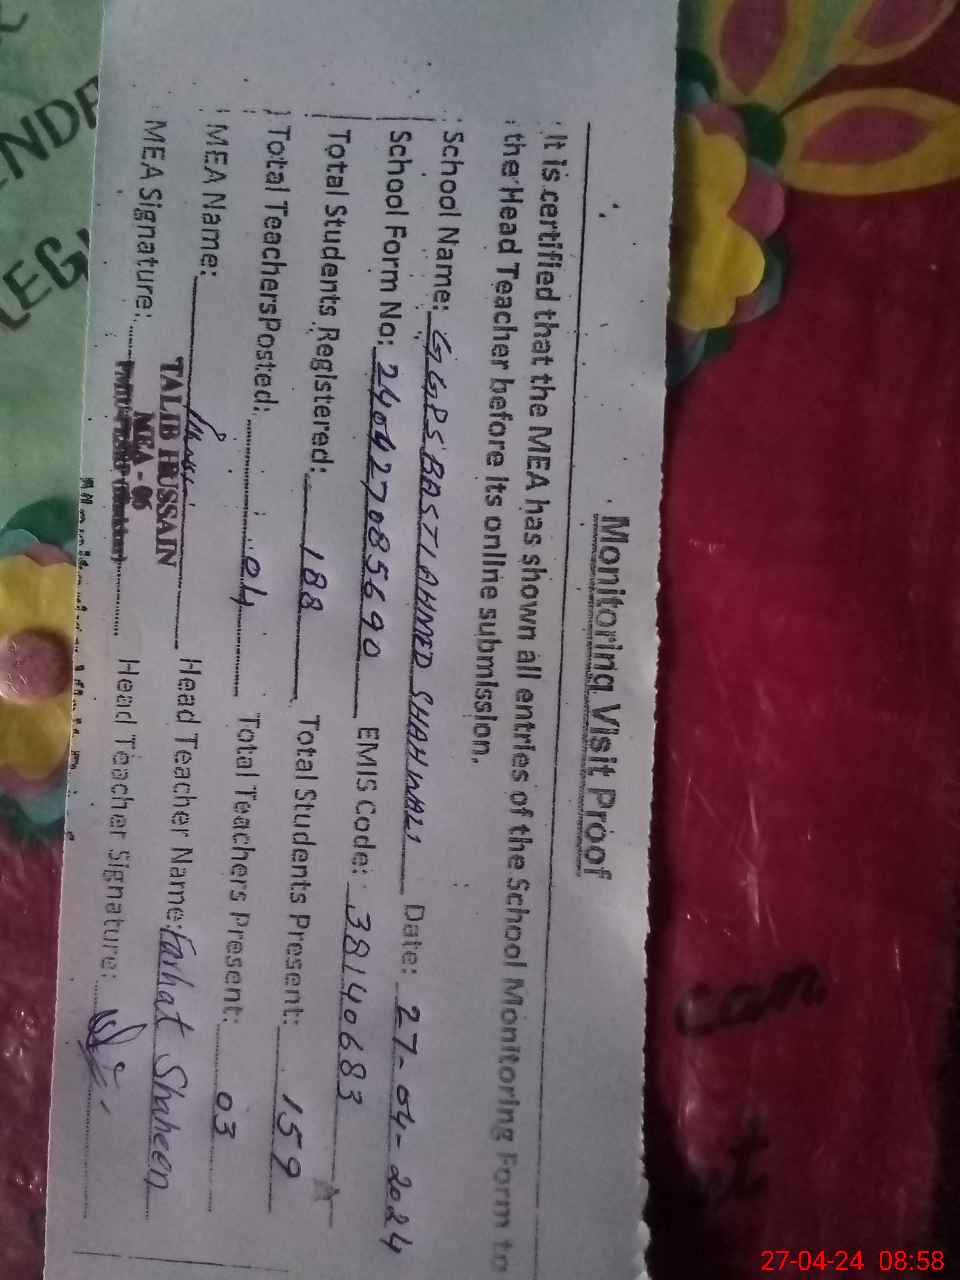 Monitoring Visit Proof
It is certified that the MEA has shown all entries of the School Monitoring Form to
the Head Teacher before its online submission.
School Name: GGPS BASTI AHMED SHAH WALI Date: 27-04-2024
School Form No: 240427085690 EMIS Code: 38140683
Total Students Registered: 188 Total Students Present: 159
Total Teachers Posted: 04 Total Teachers Present: 03
MEA Name: Head Teacher Name: Farhat Shaheen
TALIB HUSSAIN
MEA - 06
MEA Signature: Head Teacher Signature:
27-04-24 08:58